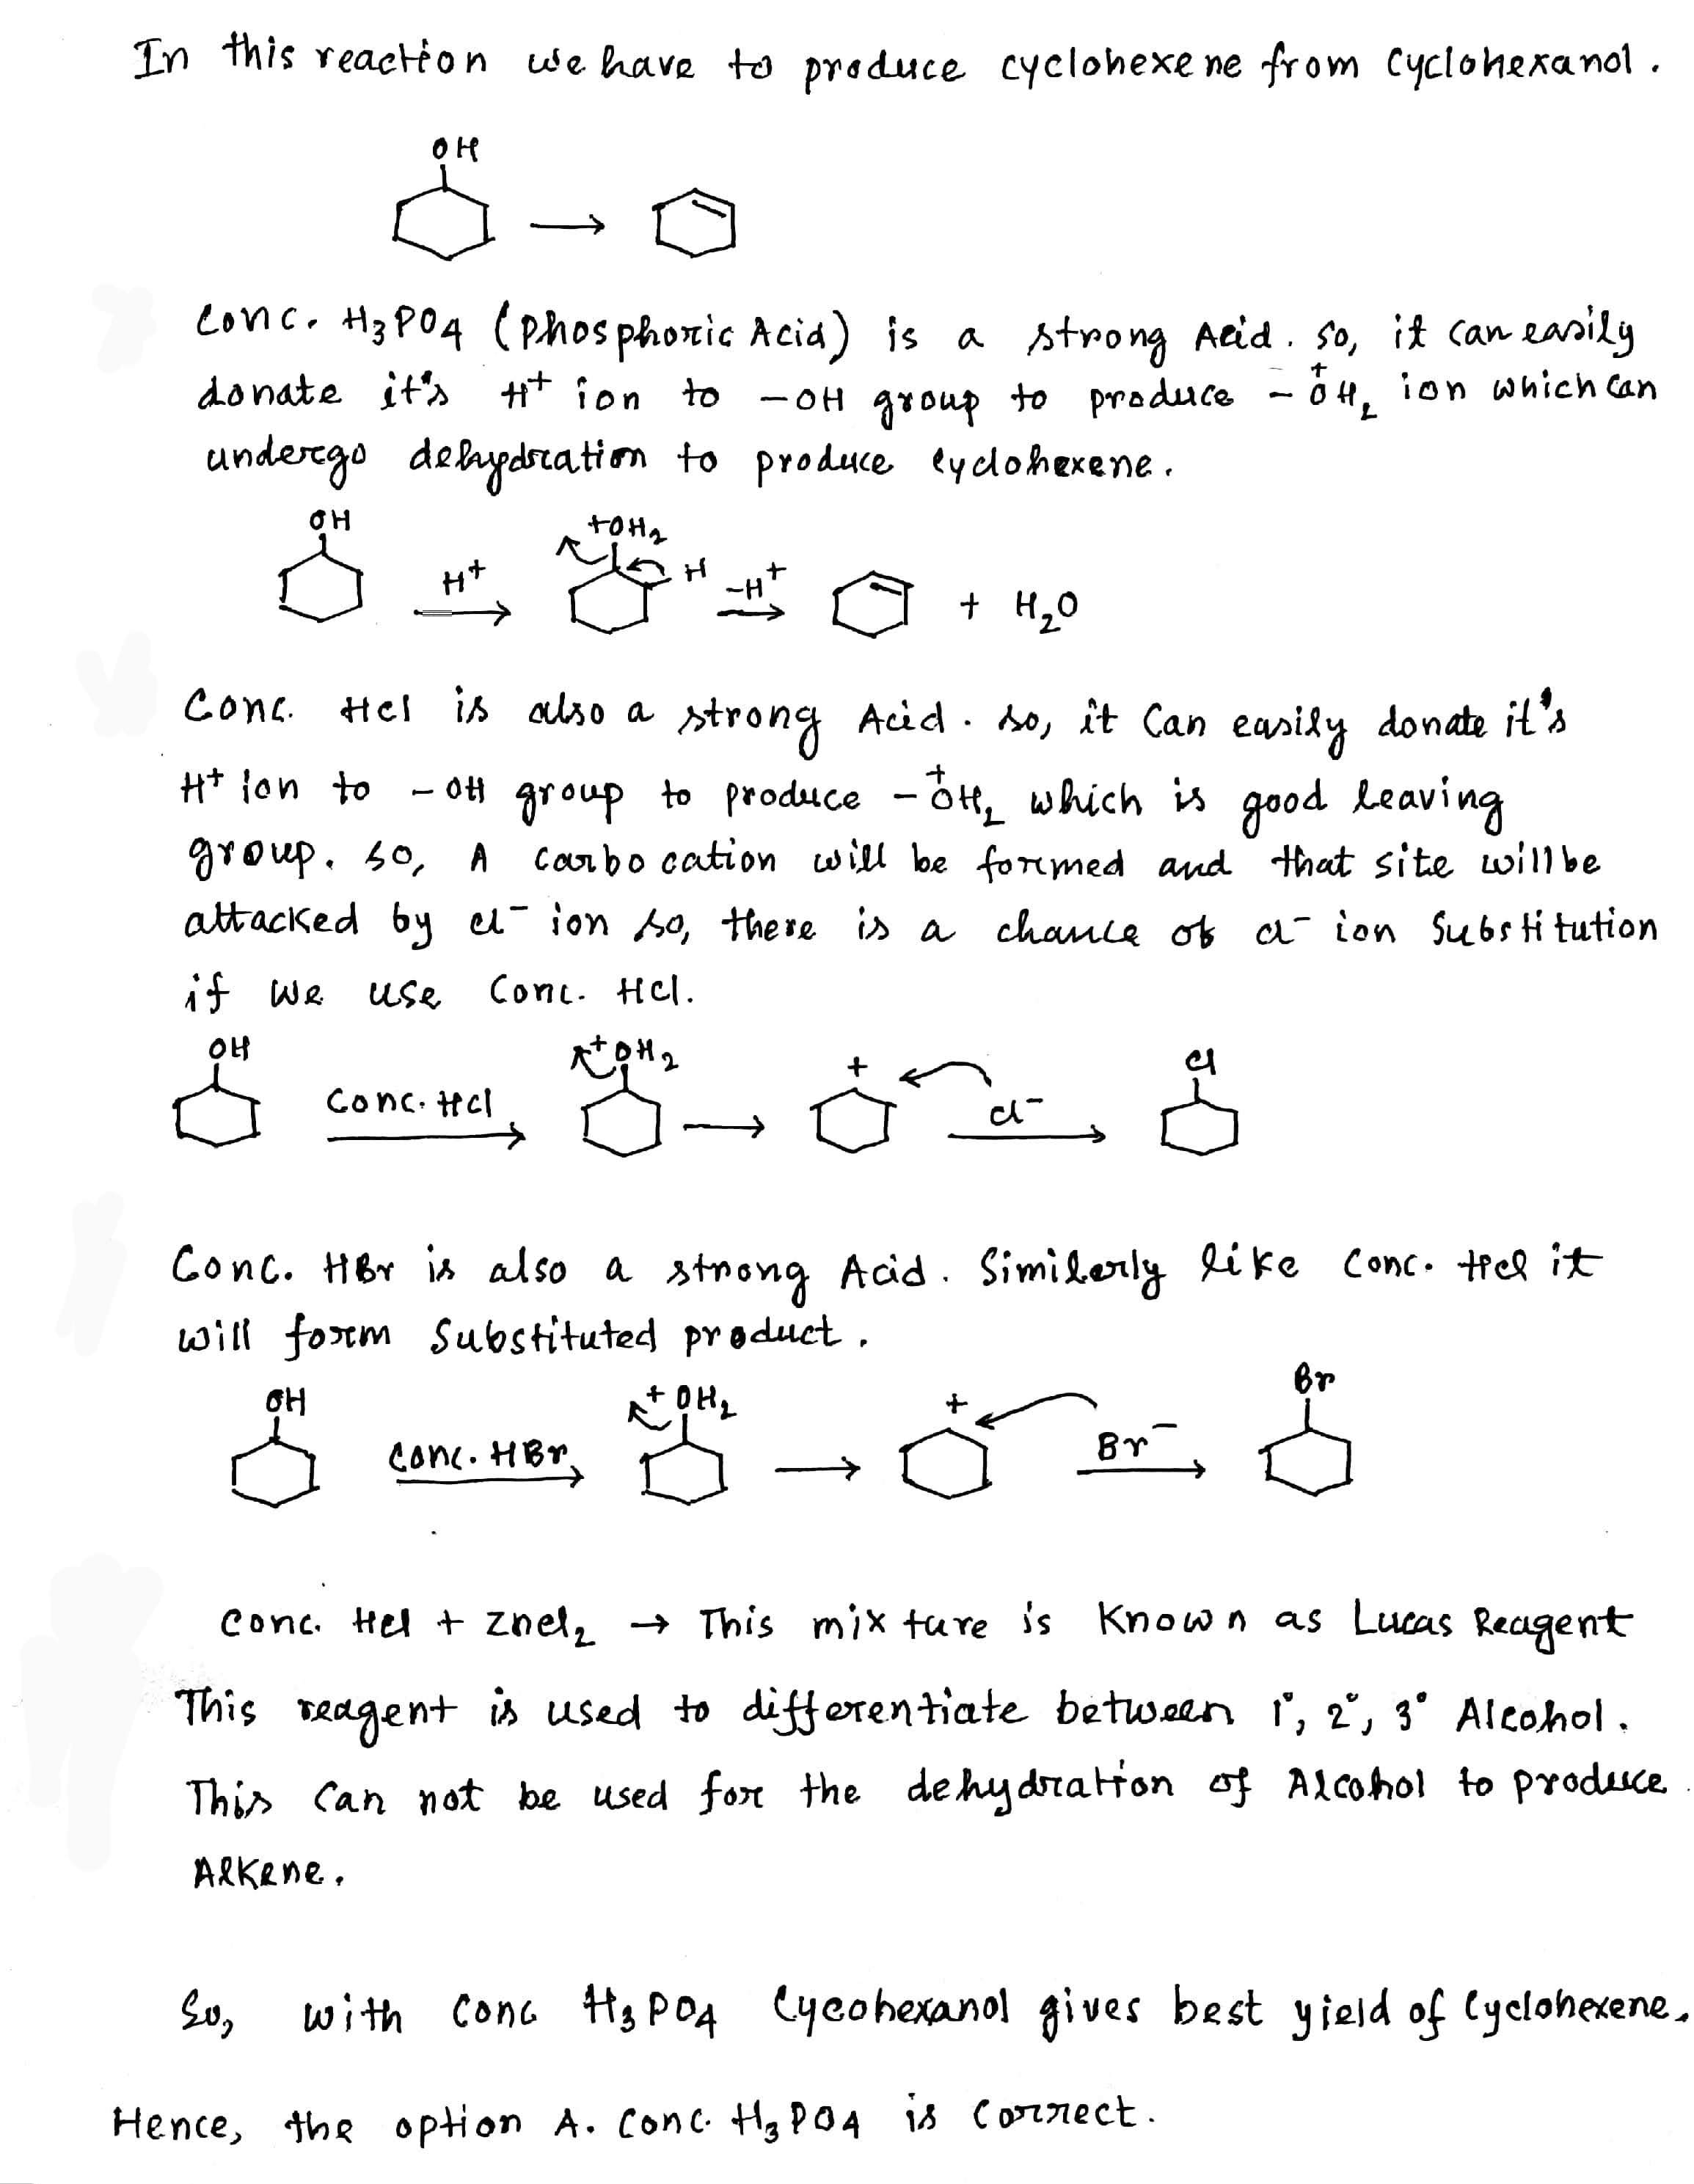 In this reaction we have to produce cyclohexene from Cyclohexanol.
OH
Conc. H3PO4 (Phosphoric Acid) is a strong Acid. So, it can easily
donate it's H+ ion to -OH group to produce -O+H2 ion which can
undergo dehydration to produce cyclohexene.
OH H+ +OH2 H -H+ + H2O
Conc. HCl is also a strong Acid. so, it Can easily donate it's
H+ ion to -OH group to produce -O+H2 which is good leaving
group. so, A carbocation will be formed and that site will be
attacked by Cl- ion so, there is a chance of Cl- ion Substitution
if we use Conc. HCl.
OH Conc. HCl +OH2 + Cl- Cl
Conc. HBr is also a strong Acid. Similerly like Conc. HCl it
will form Substituted product.
OH Conc. HBr +OH2 + Br- Br
Conc. HCl + ZnCl2 → This mixture is Known as Lucas Reagent
This reagent is used to differentiate between 1°, 2°, 3° Alcohol.
This Can not be used for the dehydration of Alcohol to produce
Alkene.
So, with Conc H3PO4 Cycohexanol gives best yield of Cyclohexene.
Hence, the option A. Conc. H3PO4 is Correct.